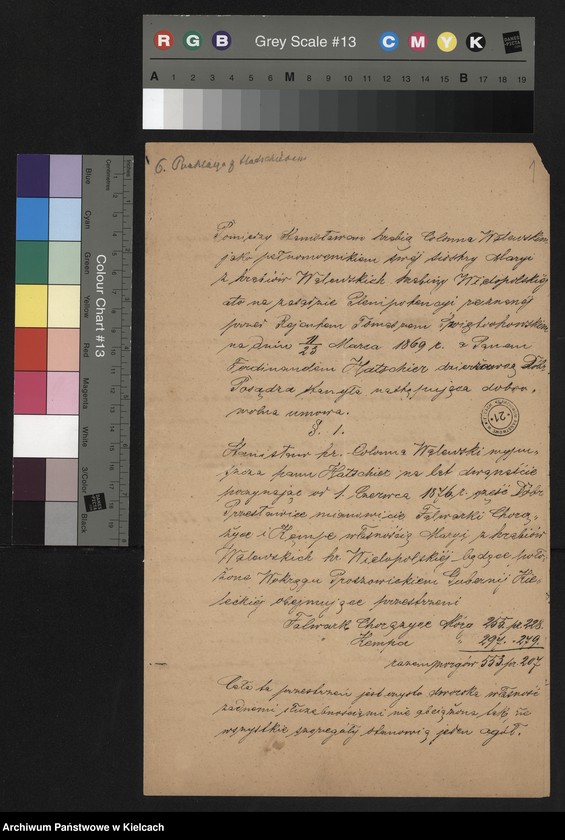 R G B Grey Scale #13 C M Y K
A 1 2 3 4 5 6 M 8 9 10 11 12 13 14 15 B 17 18 19
Colour Chart #13
Blue
Cyan
Green
Yellow
Red
Magenta
White
3/Color
Black
6.
1
Pomiędzy Stanisławem hrabią Colonna Walewskim
jako pełnomocnikiem swej siostry Maryi
z hrabiów Walewskich hrabiny Wielopolskiéj
a to na zasadzie Plenipotencyi zeznanéj
przed Rejentem Tomaszem
na dniu 11/23 Marca 1869 r. a Panem
Ferdinandem Hatschier dzierżawcą Dóbr
Posądza stanęła następująca dobro,
wolna umowa.
§. 1.
Stanisław hr. Colonna Walewski wypu,
szcza panu Hatschier na lat dwanaście
poczynając od 1. Czerwca 1876 r. część Dóbr
Przesławice mianowicie Falwarki Chorą,
życe i Kempę własność Maryi z hrabiów
Walewskich hr. Wielopolskiéj będące poło,
żone w Okręgu Proszowickiem Gubernij Kie,
leckiéj obejmujące przestrzeni
Falwark Chorążyce Morg 255. pr. 228.
" Kempa " 297. " 279.
razem morgów 553. pr. 207
Cała ta przestrzeń jest czysto dworską własność
żadnemi służebnościami nie obciążona tak iż
wszystkie szczegóły stanowią jeden ogół.
21
Archiwum Państwowe w Kielcach